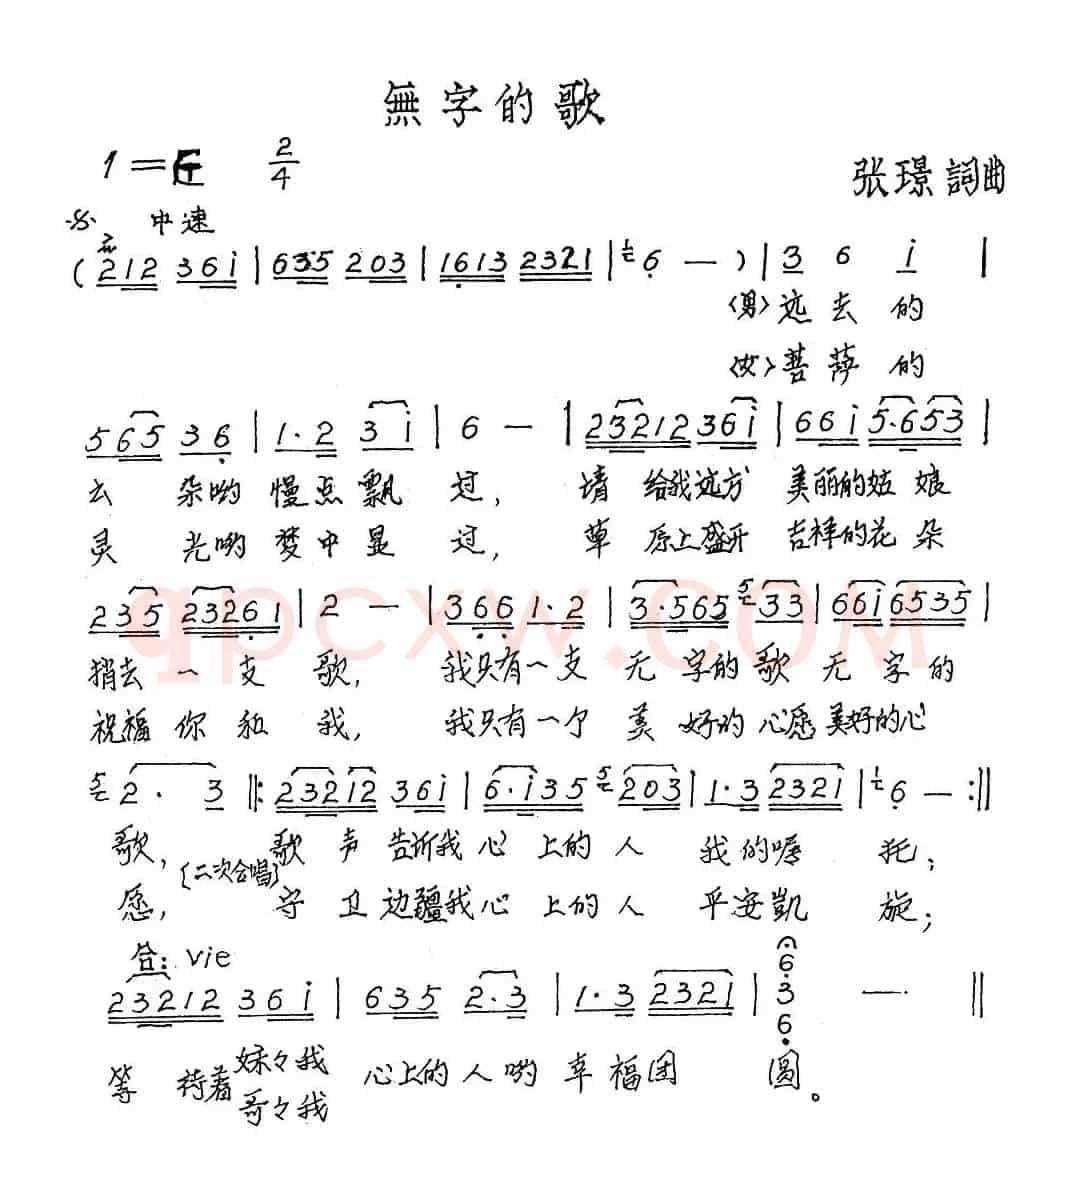 無字的歌
1=F 2/4
张璟詞曲
中速
(212 36i | 6335 203 | 1613 2321 | 6 — ) | 3 6 i |
〈男〉远去的
〈女〉菩萨的
565 36 | 1·2 3i | 6 — | 23212 36i | 66i 5·653 |
云朵哟慢点飘过, 请给我远方美丽的姑娘
灵光哟梦中显过, 草原上盛开吉祥的花朵
235 23261 | 2 — | 366 1·2 | 3·565 33 | 66i 6535 |
qpcxw.com
捎去一支歌, 我只有一支无字的歌无字的
祝福你和我, 我只有一个美好的心愿美好的心
2· 3 ‖: 23212 36i | 6·i35 203 | 1·3 2321 | 6 — :‖
歌, 歌声告诉我心上的人我的嘱托;
{二次合唱}
愿, 守卫边疆我心上的人平安凱旋;
合: vie
23212 36i | 635 2·3 | 1·3 2321 | 6 3 6 — ‖
等待着妹々我心上的人哟幸福团圆。
哥々我